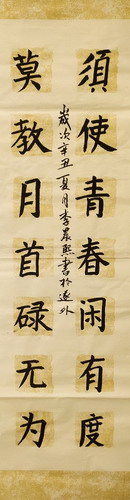 須使青春闲有度
莫教月首碌无为
岁次辛丑夏月李晨熙书於遂外